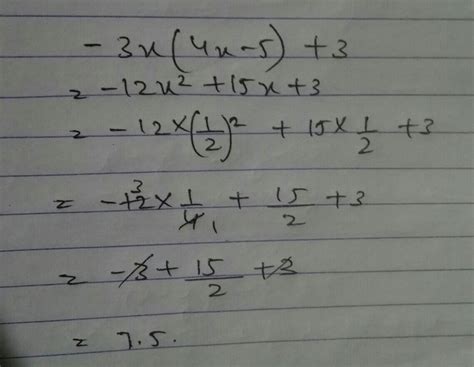 - 3x(4x-5) + 3
= -12x² + 15x + 3
= -12 × (1/2)² + 15 × 1/2 + 3
= -12 3 × 1/4 1 + 15/2 + 3
= -3 + 15/2 + 3
= 7.5.